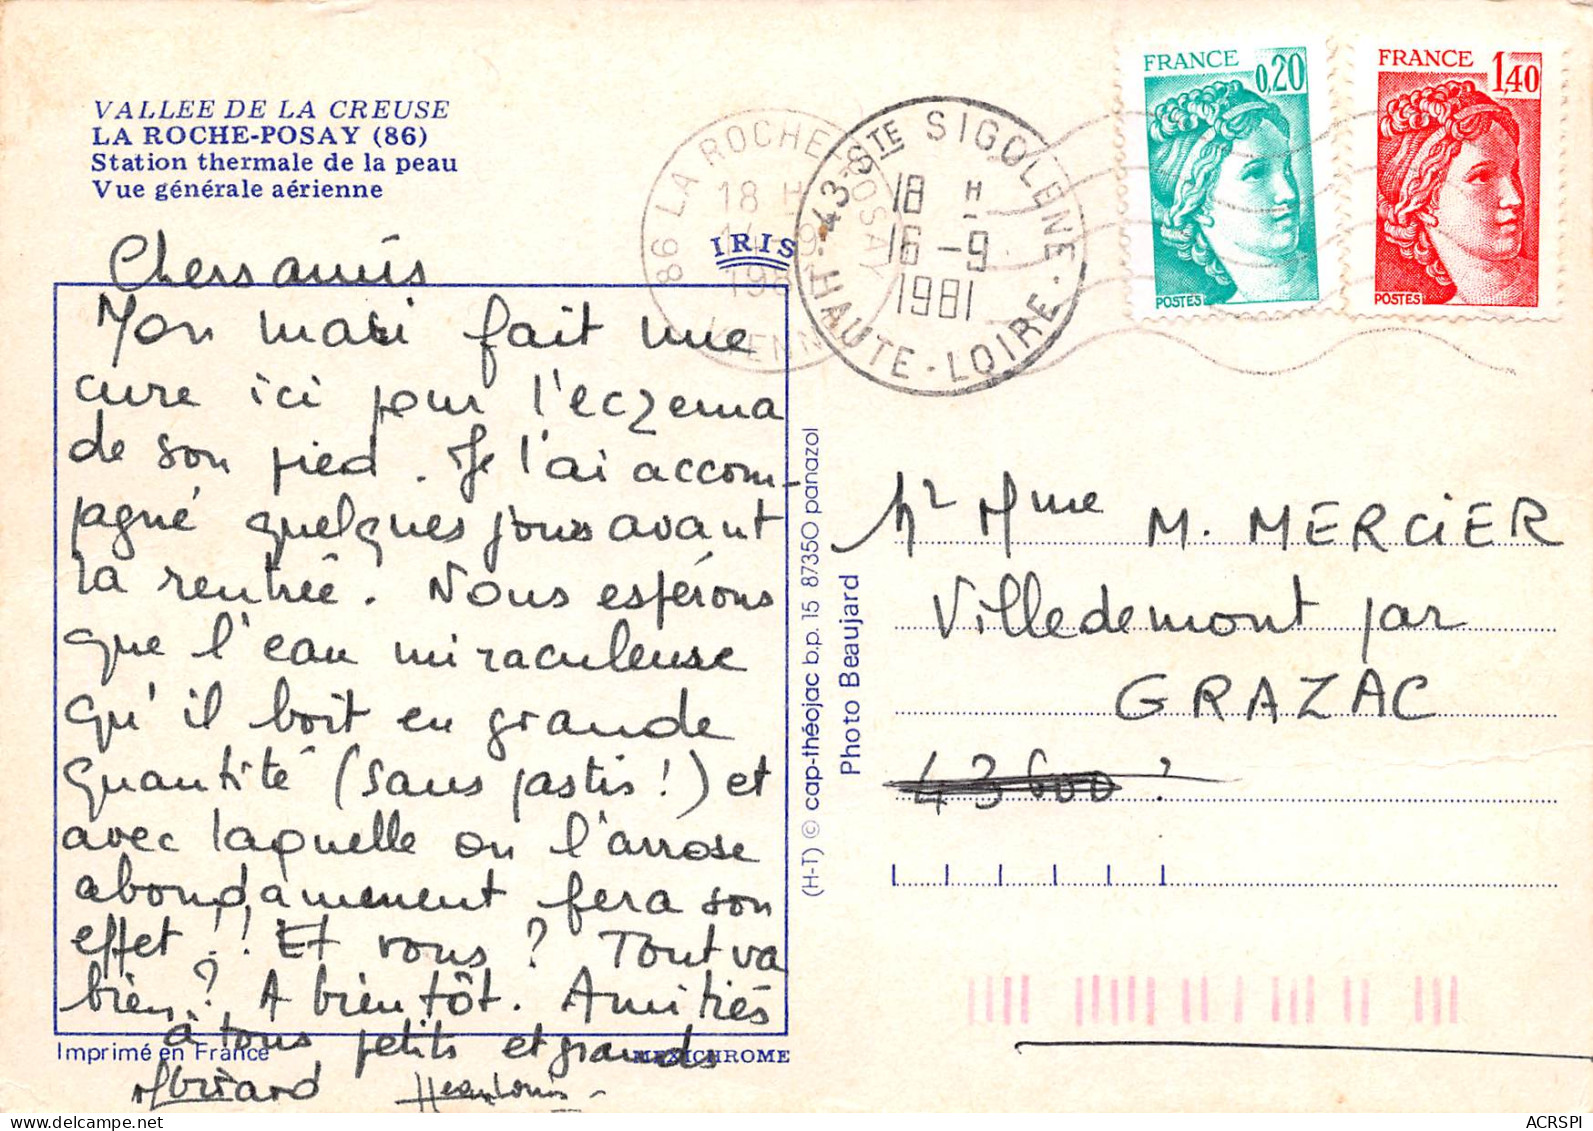 VALLEE DE LA CREUSE
LA ROCHE-POSAY (86)
Station thermale de la peau
Vue générale aérienne
IRIS
Chers amis
Mon mari fait une
cure ici pour l'eczema
de son pied. Je l'ai accom-
pagné quelques jours avant
la rentrée. Nous espérons
que l'eau miraculeuse
qu'il boit en grande
quantité (sans pastis!) et
avec laquelle on l'arrose
abondamment fera son
effet!! Et vous? Tout va
bien? A bientôt. Amitiés
à tous petits et grands
Imprimé en France
MEXICHROME
(H-T) © cap-théojac b.p. 15 87350 panazol
Photo Beaujard
86 LA ROCHE-POSAY
18 H
14-9
VIENNE
43 STE SIGOLENE
18 H
16-9
1981
HAUTE-LOIRE
FRANCE
0,20
POSTES
FRANCE
1,40
POSTES
Mr Mme M. MERCIER
Villedemont par
GRAZAC
43600 ?
ACRSPI